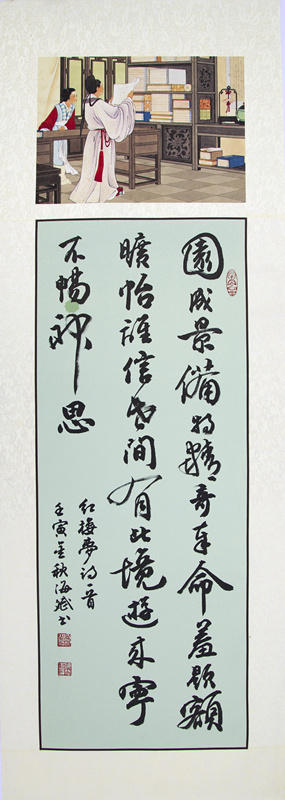 園成景備特精奇奉命羞題額
曠怡誰信世間有此境遊来寧
不暢神思
红楼夢诗一首
壬寅金秋海斌书